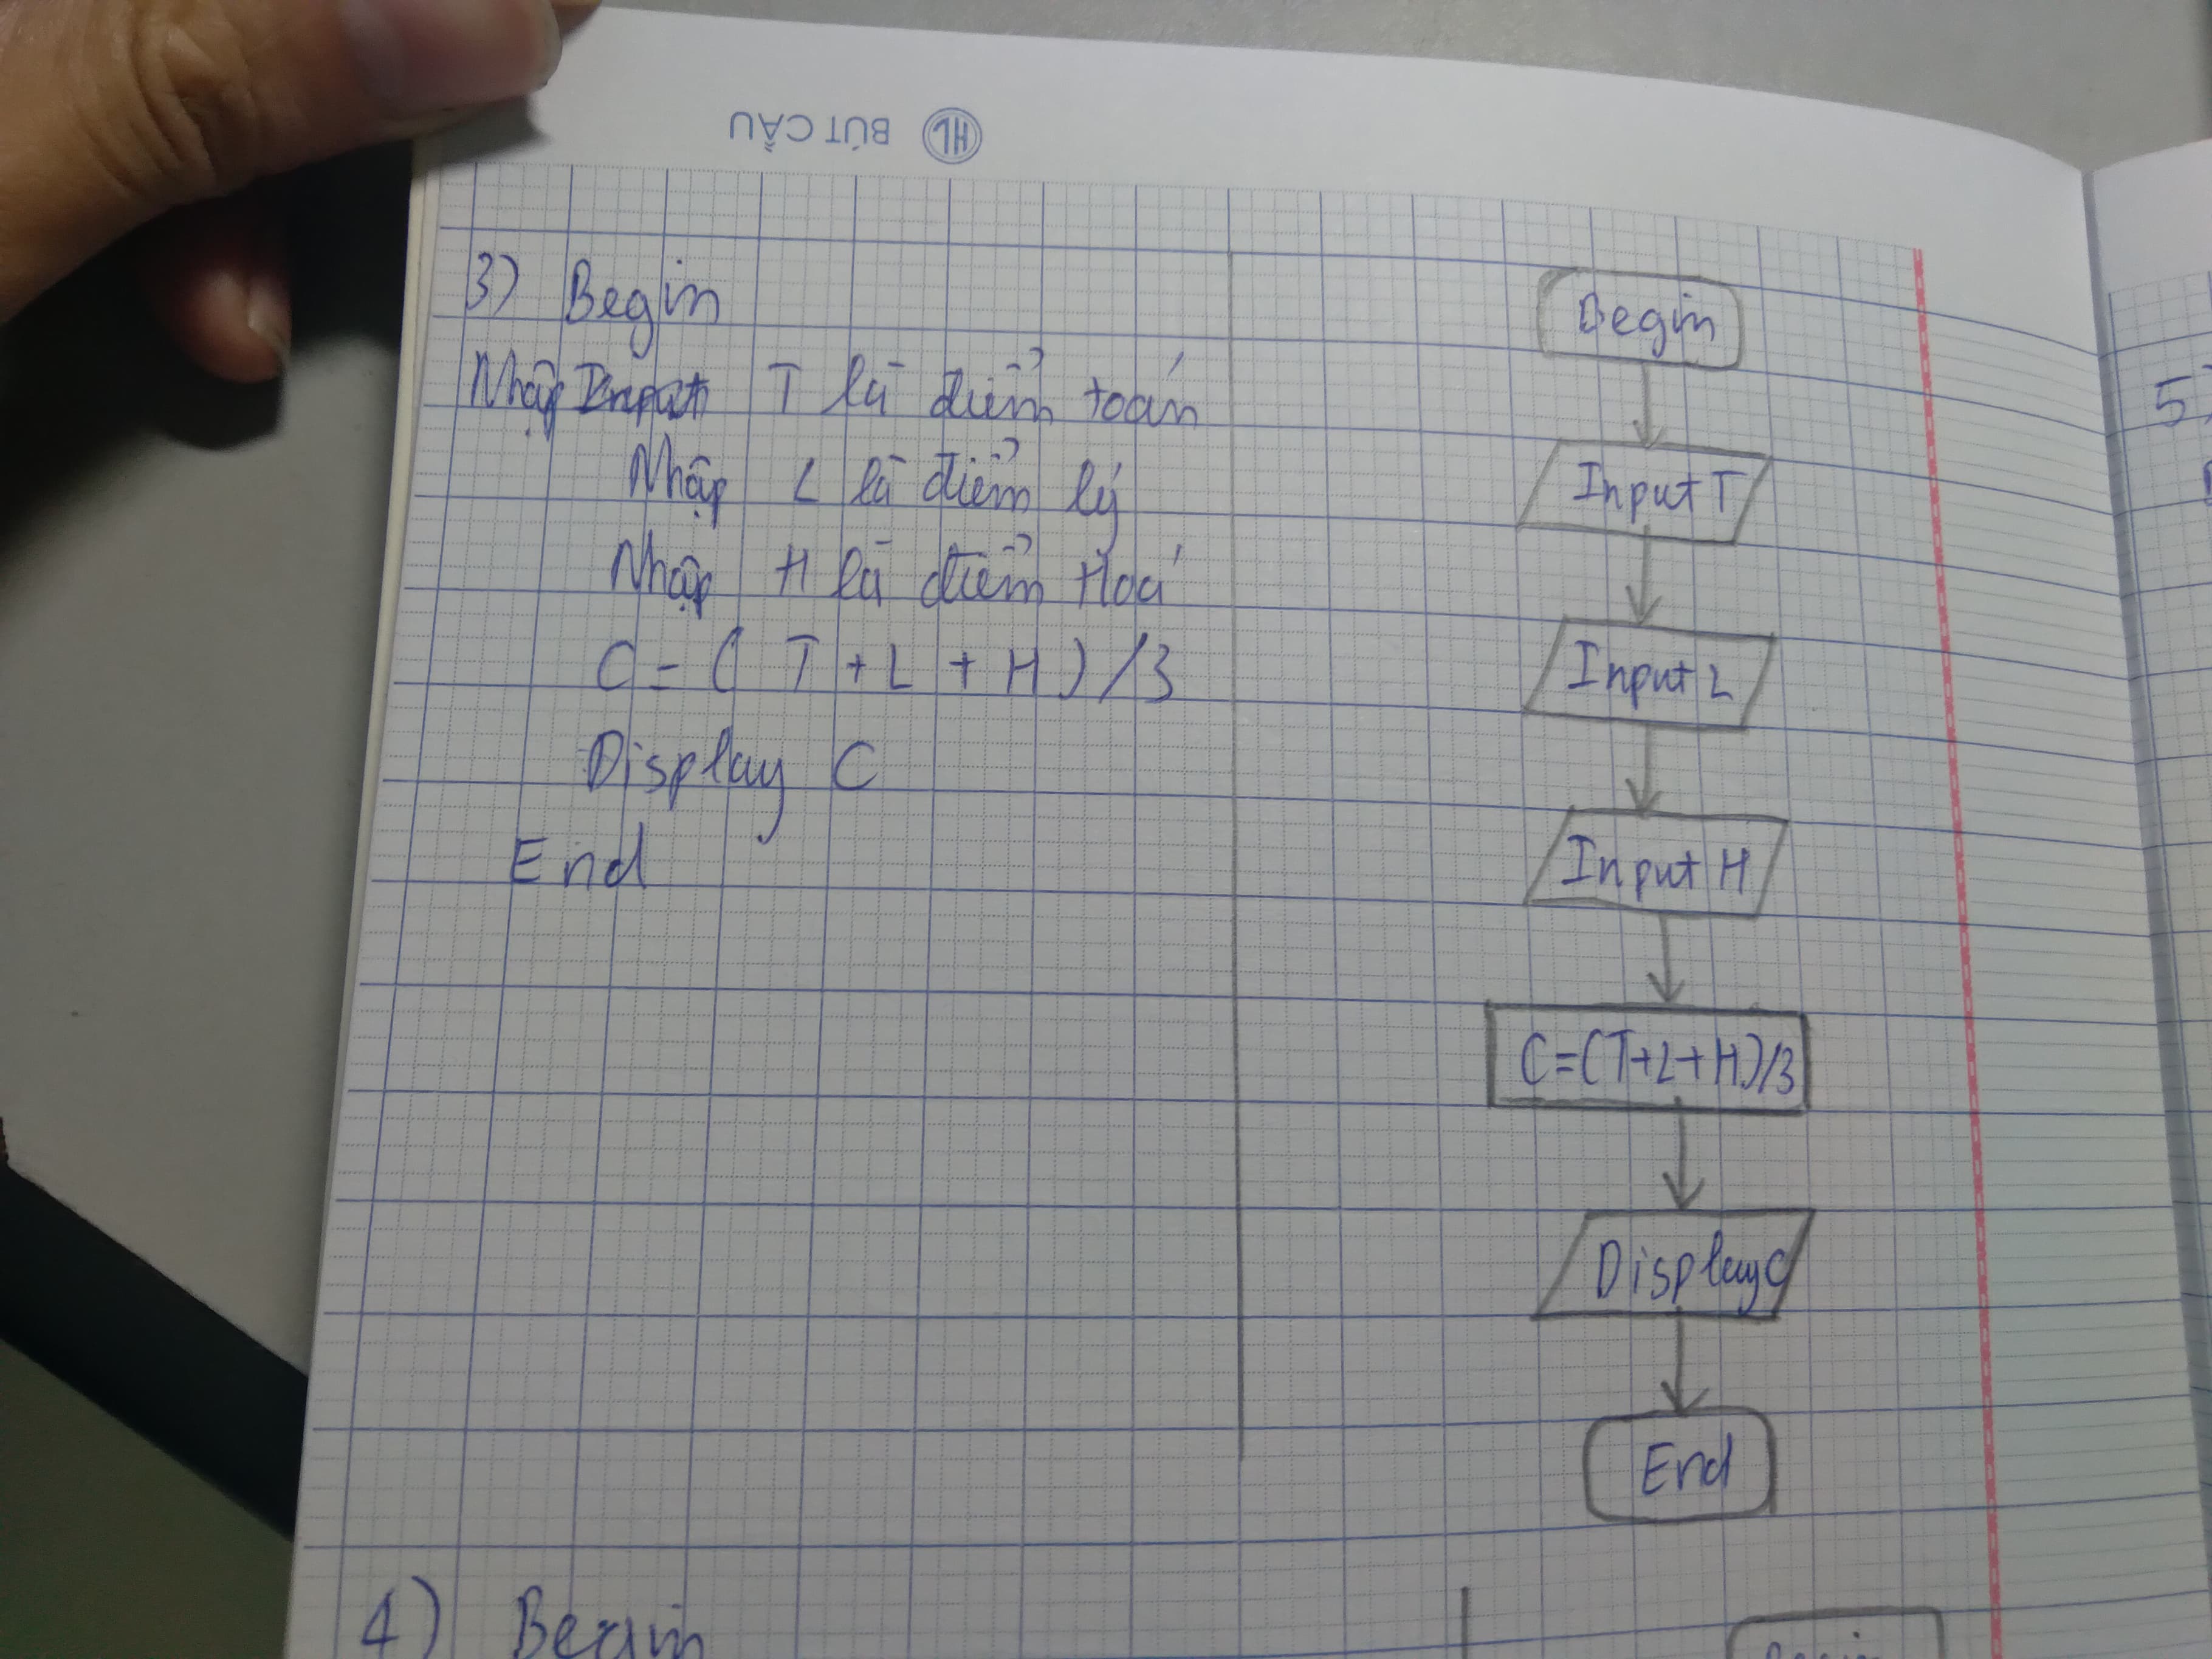 HL BÚT CẦU
3) Begin
Nhập T là điểm toán
Nhập L là điểm lý
Nhập H là điểm Hoá
C = ( T + L + H ) / 3
Display C
End
Begin
Input T
Input L
Input H
C=(T+L+H)/3
Display C
End
4) Begin
Begin
5)